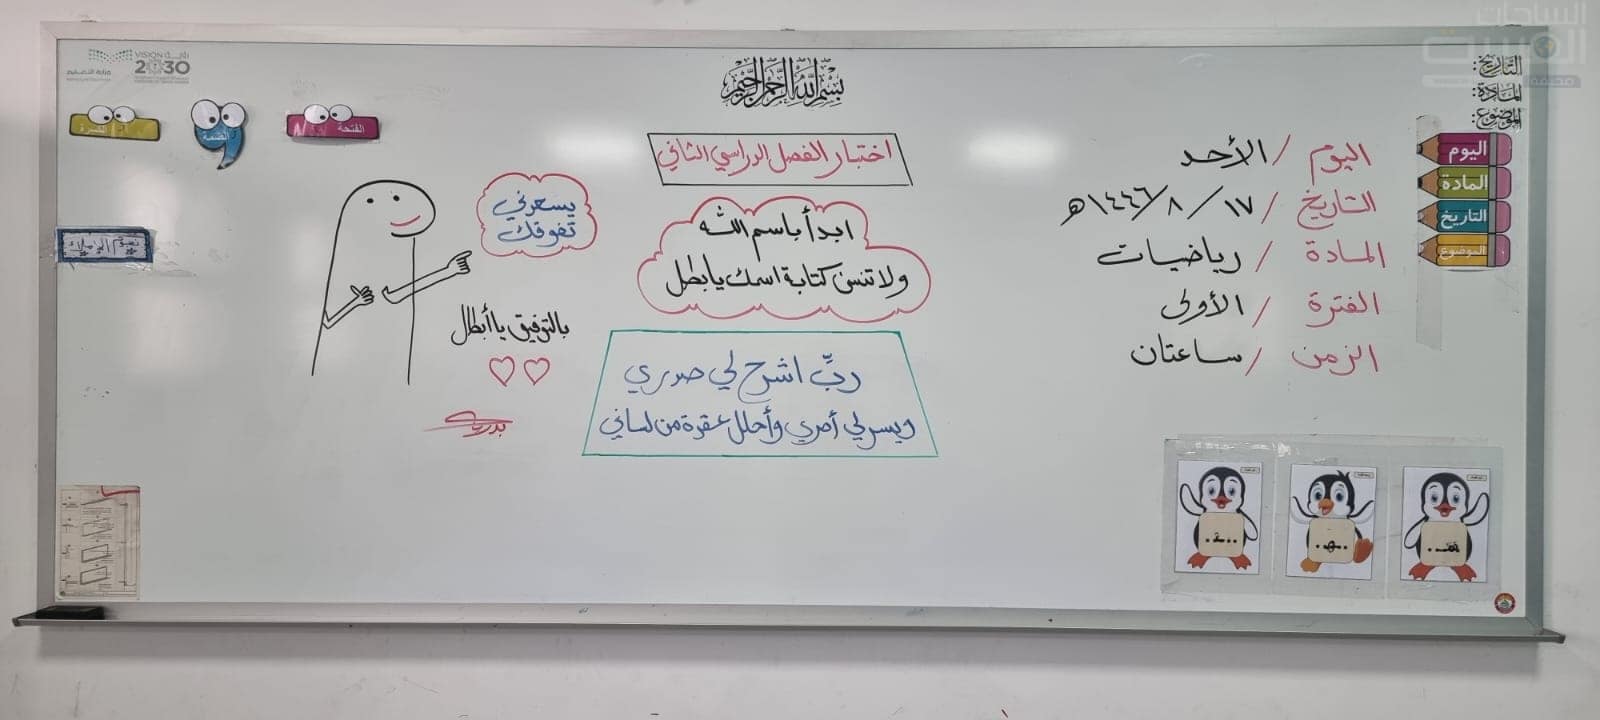 بسم الله الرحمن الرحيم
التاريخ:
المادة:
الموضوع:
اليوم
المادة
التاريخ
الموضوع
اليوم / الأحد
التاريخ / ١٧ / ٨ / ١٤٤٦هـ
المادة / رياضيات
الفترة / الأولى
الزمن / ساعتان
اختبار الفصل الدراسي الثاني
ابدأ باسم الله
ولا تنس كتابة اسمك يا بطل
ربِّ اشرح لي صدري
ويسر لي أمري وأحلل عقدة من لساني
يسعدني
تفوقك
بالتوفيق يا أبطال
الفتحة
الضمة
الكسرة
نجوم الإملاء
VISION رؤية
2030
وزارة التعليم
هـ
ـهـ